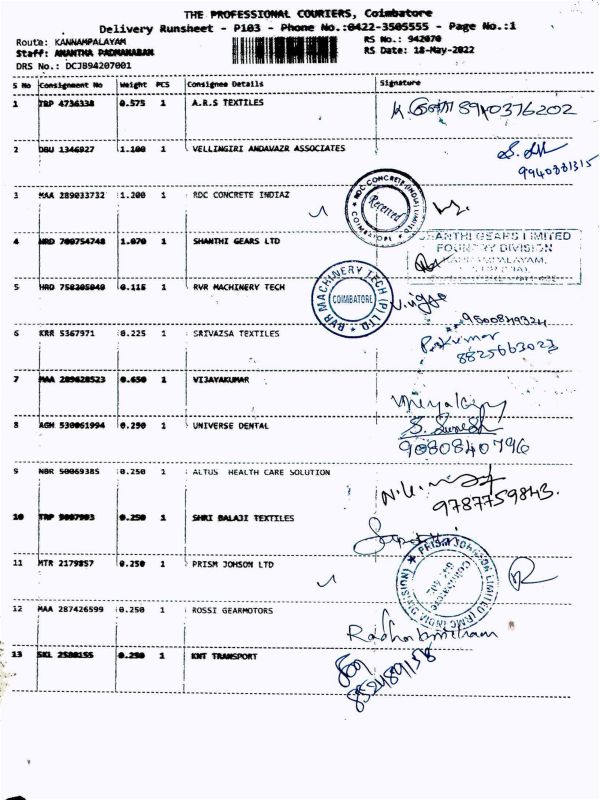 THE PROFESSIONAL COURIERS, Coimbatore
Delivery Runsheet - P103 - Phone No.:0422-3505555 - Page No.:1
Route: KANNAMPALAYAM RS No.: 942070
Staff: ANANTHA PADMANABAN RS Date: 18-May-2022
DRS No.: DCJB94207001
S No Consignment No Weight PCS Consignee Details Signature
1 TRP 4736338 0.575 1 A.R.S TEXTILES 8940376202
2 DBU 1346927 1.100 1 VELLINGIRI ANDAVAZR ASSOCIATES
9940881315
3 MAA 289033732 1.200 1 RDC CONCRETE INDIAZ
RDC CONCRETE (INDIA) LIMITED COIMBATORE Received
4 HRD 700754748 1.070 1 SHANTHI GEARS LTD
SHANTHI GEARS LIMITED
FOUNDRY DIVISION
KANNAMPALAYAM,
5 HRD 758205040 0.115 1 RVR MACHINERY TECH
RVR MACHINERY TECH (P) LTD COIMBATORE
6 KRR 5367971 0.225 1 SRIVAZSA TEXTILES
9500849324
P.Kumar
8825663023
7 MAA 289628523 0.650 1 VIJAYAKUMAR
8 AGH 530061994 0.250 1 UNIVERSE DENTAL
S. Suresh
9080840796
9 NBR 50069385 0.250 1 ALTUS HEALTH CARE SOLUTION
9787759843.
10 TRP 9087903 0.250 1 SHRI BALAJI TEXTILES
11 MTR 2179857 0.250 1 PRISM JOHSON LTD
PRISM JOHNSON LIMITED (RMC INDIA DIVISION)
12 MAA 287426599 0.250 1 ROSSI GEARMOTORS
13 SKL 2580155 0.250 1 KNT TRANSPORT
852489158